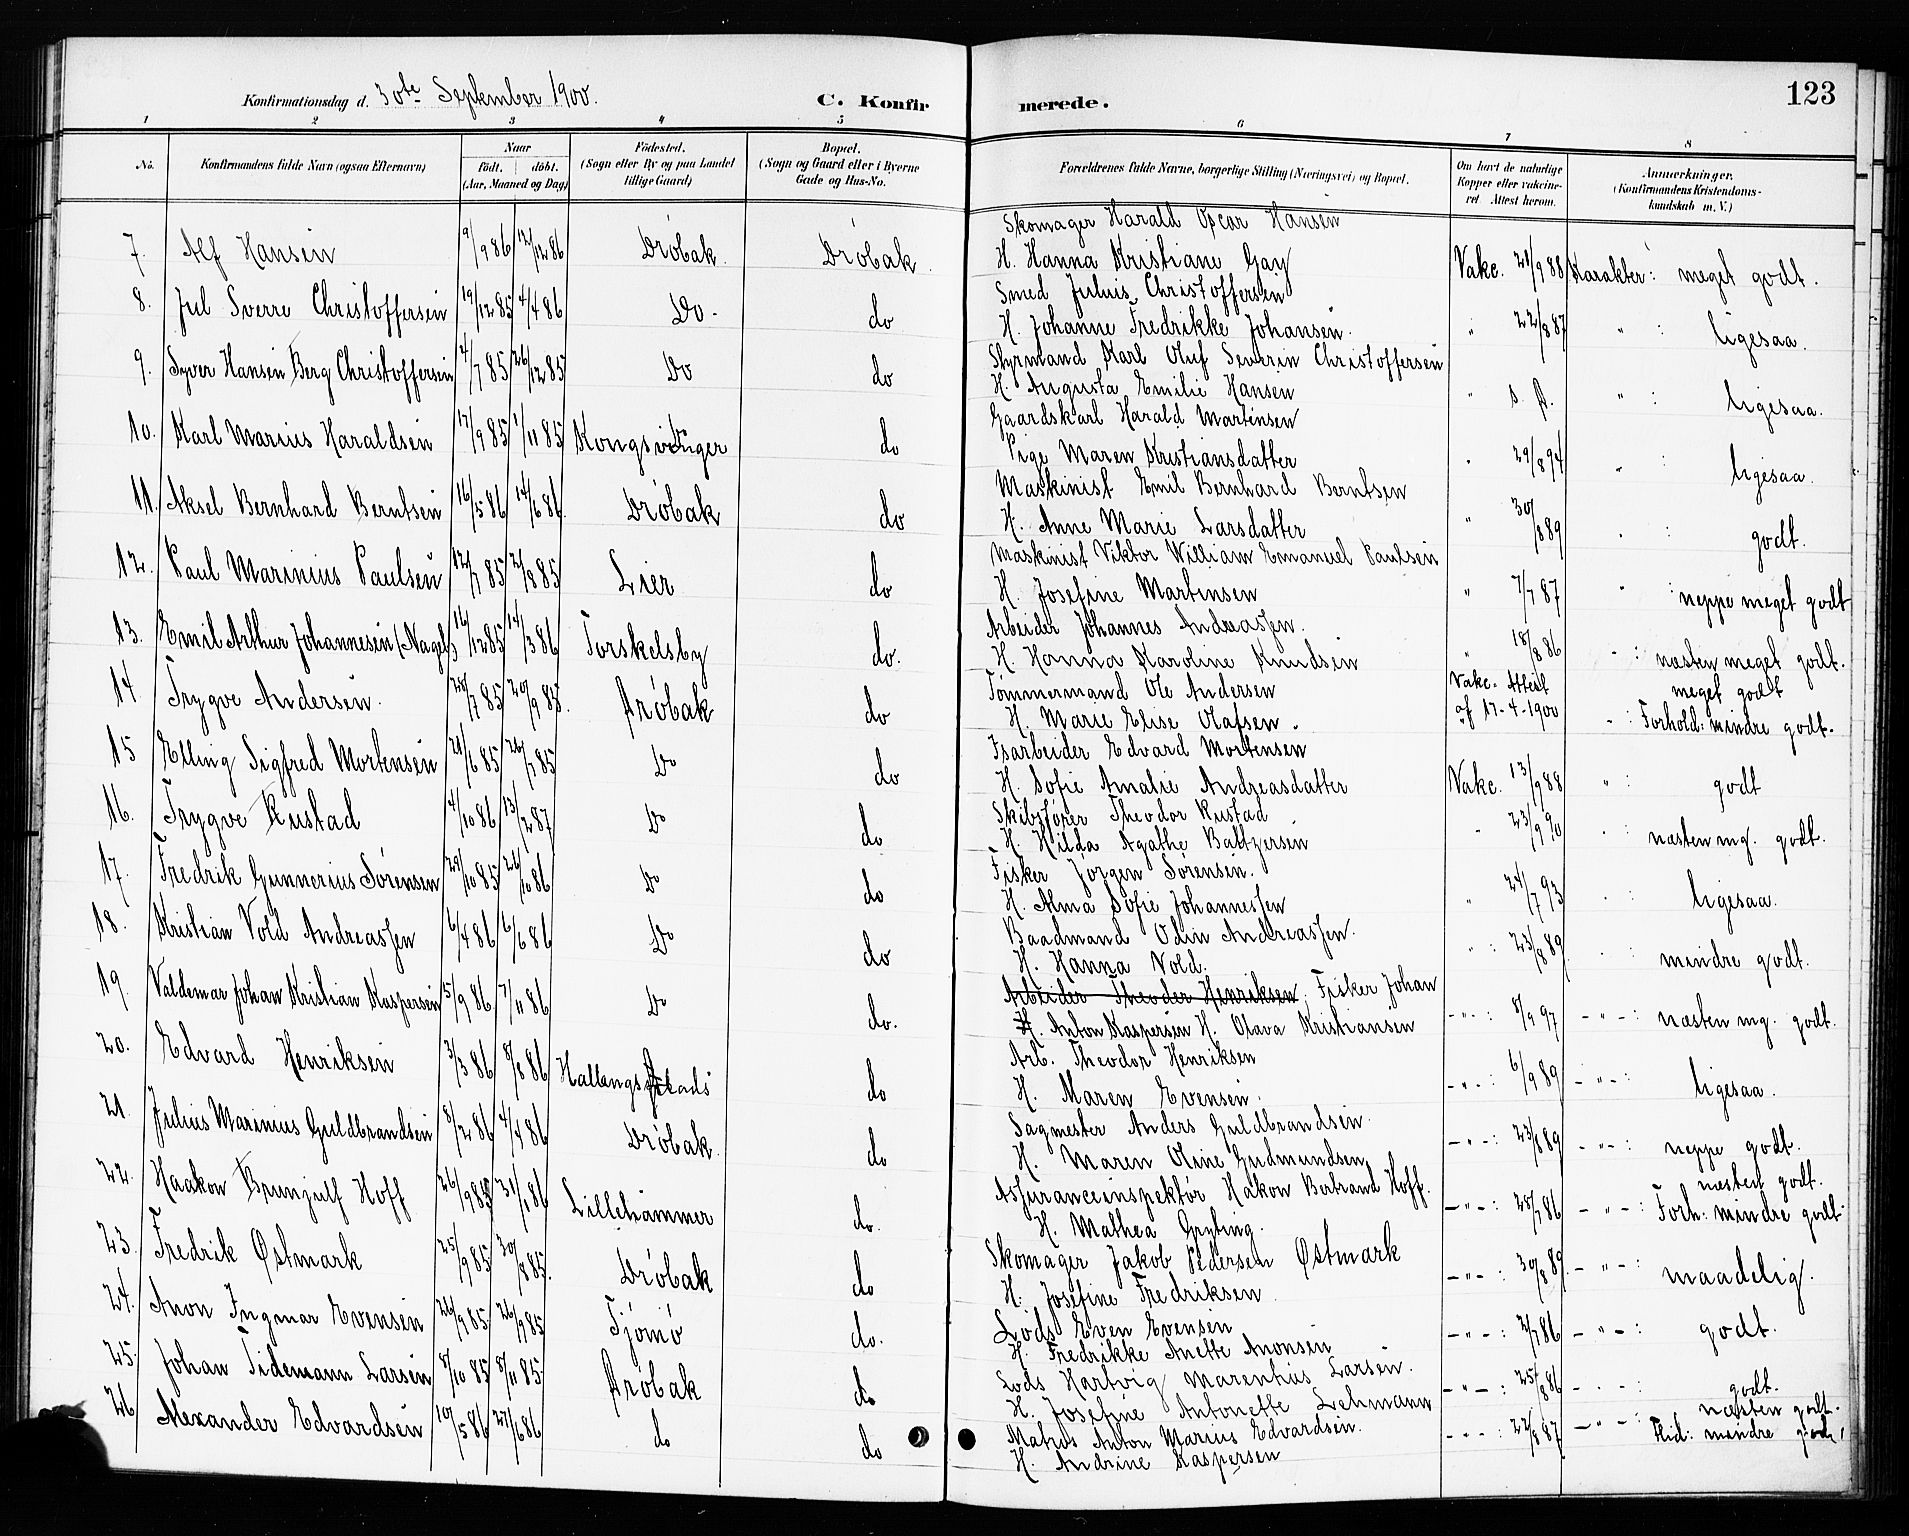 Konfirmationsdag d. 30te September 1900.
C. Konfirmerede.
123
1 2 3 4 5 6 7 8
No.
Konfirmandens fulde Navn (ogsaa Efternavn)
Naar
födt. döbt.
(Aar, Maaned og Dag)
Födested.
(Sogn eller By og paa Landet
tillige Gaard)
Bopæl.
(Sogn og Gaard eller i Byerne
Gade og Hus-No.
Forældrenes fulde Navne, borgerlige Stilling (Næringsvei) og Bopæl.
Om havt de naturlige
Kopper eller vakcine-
ret. Attest herom.
Anmærkninger.
(Konfirmandens Kristendoms-
kundskab m. V.)
7. Alf Hansen 19/9 86 12/12 86 Drøbak. Drøbak. Skomager Harald Oscar Hansen
H. Hanna Kristiane Gay Vakc. 21/9 88 Karakter: meget godt.
8. Jul Sverre Christoffersen 19/12 85 4/4 86 Do. do Smed Julius Christoffersen
H. Johanne Fredrikke Johansen. " 22/8 87 " : ligesaa.
9. Syver Hansen Berg Christoffersen 4/7 85 26/12 85 Do do Styrmand Karl Oluf Severin Christoffersen
H. Augusta Emilie Hansen " s. d. " : ligesaa.
10. Karl Marius Haraldsen 17/9 85 1/11 85 Kongsvinger do Gaardskarl Harald Martinsen
Pige Maren Kristiansdatter " 29/8 94 " : ligesaa.
11. Aksel Bernhard Berntsen 16/5 86 14/6 86. Drøbak do Maskinist Emil Bernhard Berntsen
H. Anne Marie Larsdatter " 30/8 89 " : godt.
12. Paul Marinius Paulsen 12/7 85 2/8 85 Lier do Maskinist Viktor William Emanuel Paulsen
H. Josefine Martinsen " 7/7 87 " : neppe meget godt
13. Emil Arthur Johannesen (Nagel) 16/12 85 14/3 86 Torskelsby do. Arbeider Johannes Andreassen.
H. Hanna Karoline Knudsen " 18/8 86 " : næsten meget godt.
14. Trygve Andersen. 28/7 85 20/9 85. Drøbak do Tømmermand Ole Andersen Vakc. Attest meget godt
H. Marie Elise Olafsen. af 17-4-1900 " : Forhold: mindre godt.
15 Elling Sigfred Mortensen 21/6 85 26/7 85 Do do Isarbeider Edvard Mortensen
H. Sofie Amalie Andreasdatter Vakc. 13/9 88 " : godt
16. Trygve Rustad 4/10 86 13/2 87 Do do Skibsfører Theodor Rustad
H. Hilda Agathe Baltzersen " 23/9 90 " : næsten mg. godt.
17. Fredrik Gunnerius Sørensen 29/10 85 24/10 86 Do do Fisker Jørgen Sørensen.
H. Alma Sofie Johannessen " 24/7 93 " : ligesaa.
18. Kristian Vold Andreassen 6/4 86 6/6 86 Do do Baadmand Odin Andreassen.
H. Hanna Vold. " : 23/8 89 " : mindre godt.
19. Valdemar Johan Kristian Kaspersen 5/9 86 7/11 86 Do do. Arbeider Theodor Henriksen. Fisker Johan
H. Anton Kaspersen H. Olava Kristiansen - " - : 8/9 97 - " - : næsten mg. godt.
20. Edvard Henriksen 3/3 86 8/8 86 do Arb. Theodor Henriksen
H. Maren Evensen. - " - : 6/9 89 - " - : ligesaa.
21. Julius Marinius Guldbrandsen 8/2 86 4/4 86 Drøbak. do Sagmester Anders Guldbrandsen.
H. Maren Oline Gudmundsen. - " - : 23/8 89 - " - : neppe godt.
22. Haakon Brunjulf Hoff 26/9 85 31/1 86 Lillehammer do. Assuranceinspektør Hakon Bertrand Hoff. næsten godt.
H. Mathea Gryting. - " - : 28/7 86 - " - : Forh: mindre godt.
23. Fredrik Østmark 25/9 85 30/8 85. Drøbak do Skomager Jakob Pedersen Østmark
H. Josefine Fredriksen. - " - : 30/8 89. - " - : maadelig.
24. Anon Ingmar Evensen 20/9 85 26/9 85 Tjømø do. Lods Even Evensen
H. Fredrikke Anette Anonsen - " - : 2/7 86 - " - : godt.
25. Johan Tidemann Larsen 8/10 85 8/11 85. Drøbak do Lods Hartvig Marentius Larsen.
H. Josefine Antonette Lehmann - " - : 25/8 86 - " - : godt.
26 Alexander Edvardsen 10/5 86 27/6 86 do do Matros Anton Marius Edvardsen. næsten godt.
H. Andrine Kaspersen - " - : 22/8 87 - " - : Flid: mindre godt